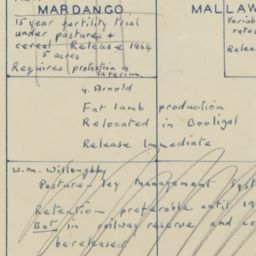 MARDANGO
MALLAW
15 year fertility trial
Variab
under pastures +
rates
cereal Release 1964
Releas
5 acres
Requires protection in
interim.
G. Arnold
Fat lamb production
Relocated in Booligal
Release Immediate
W.M. Willoughby
Pasture - ley management syst
Retention preferable until 19
But in railway reserve and co
be released